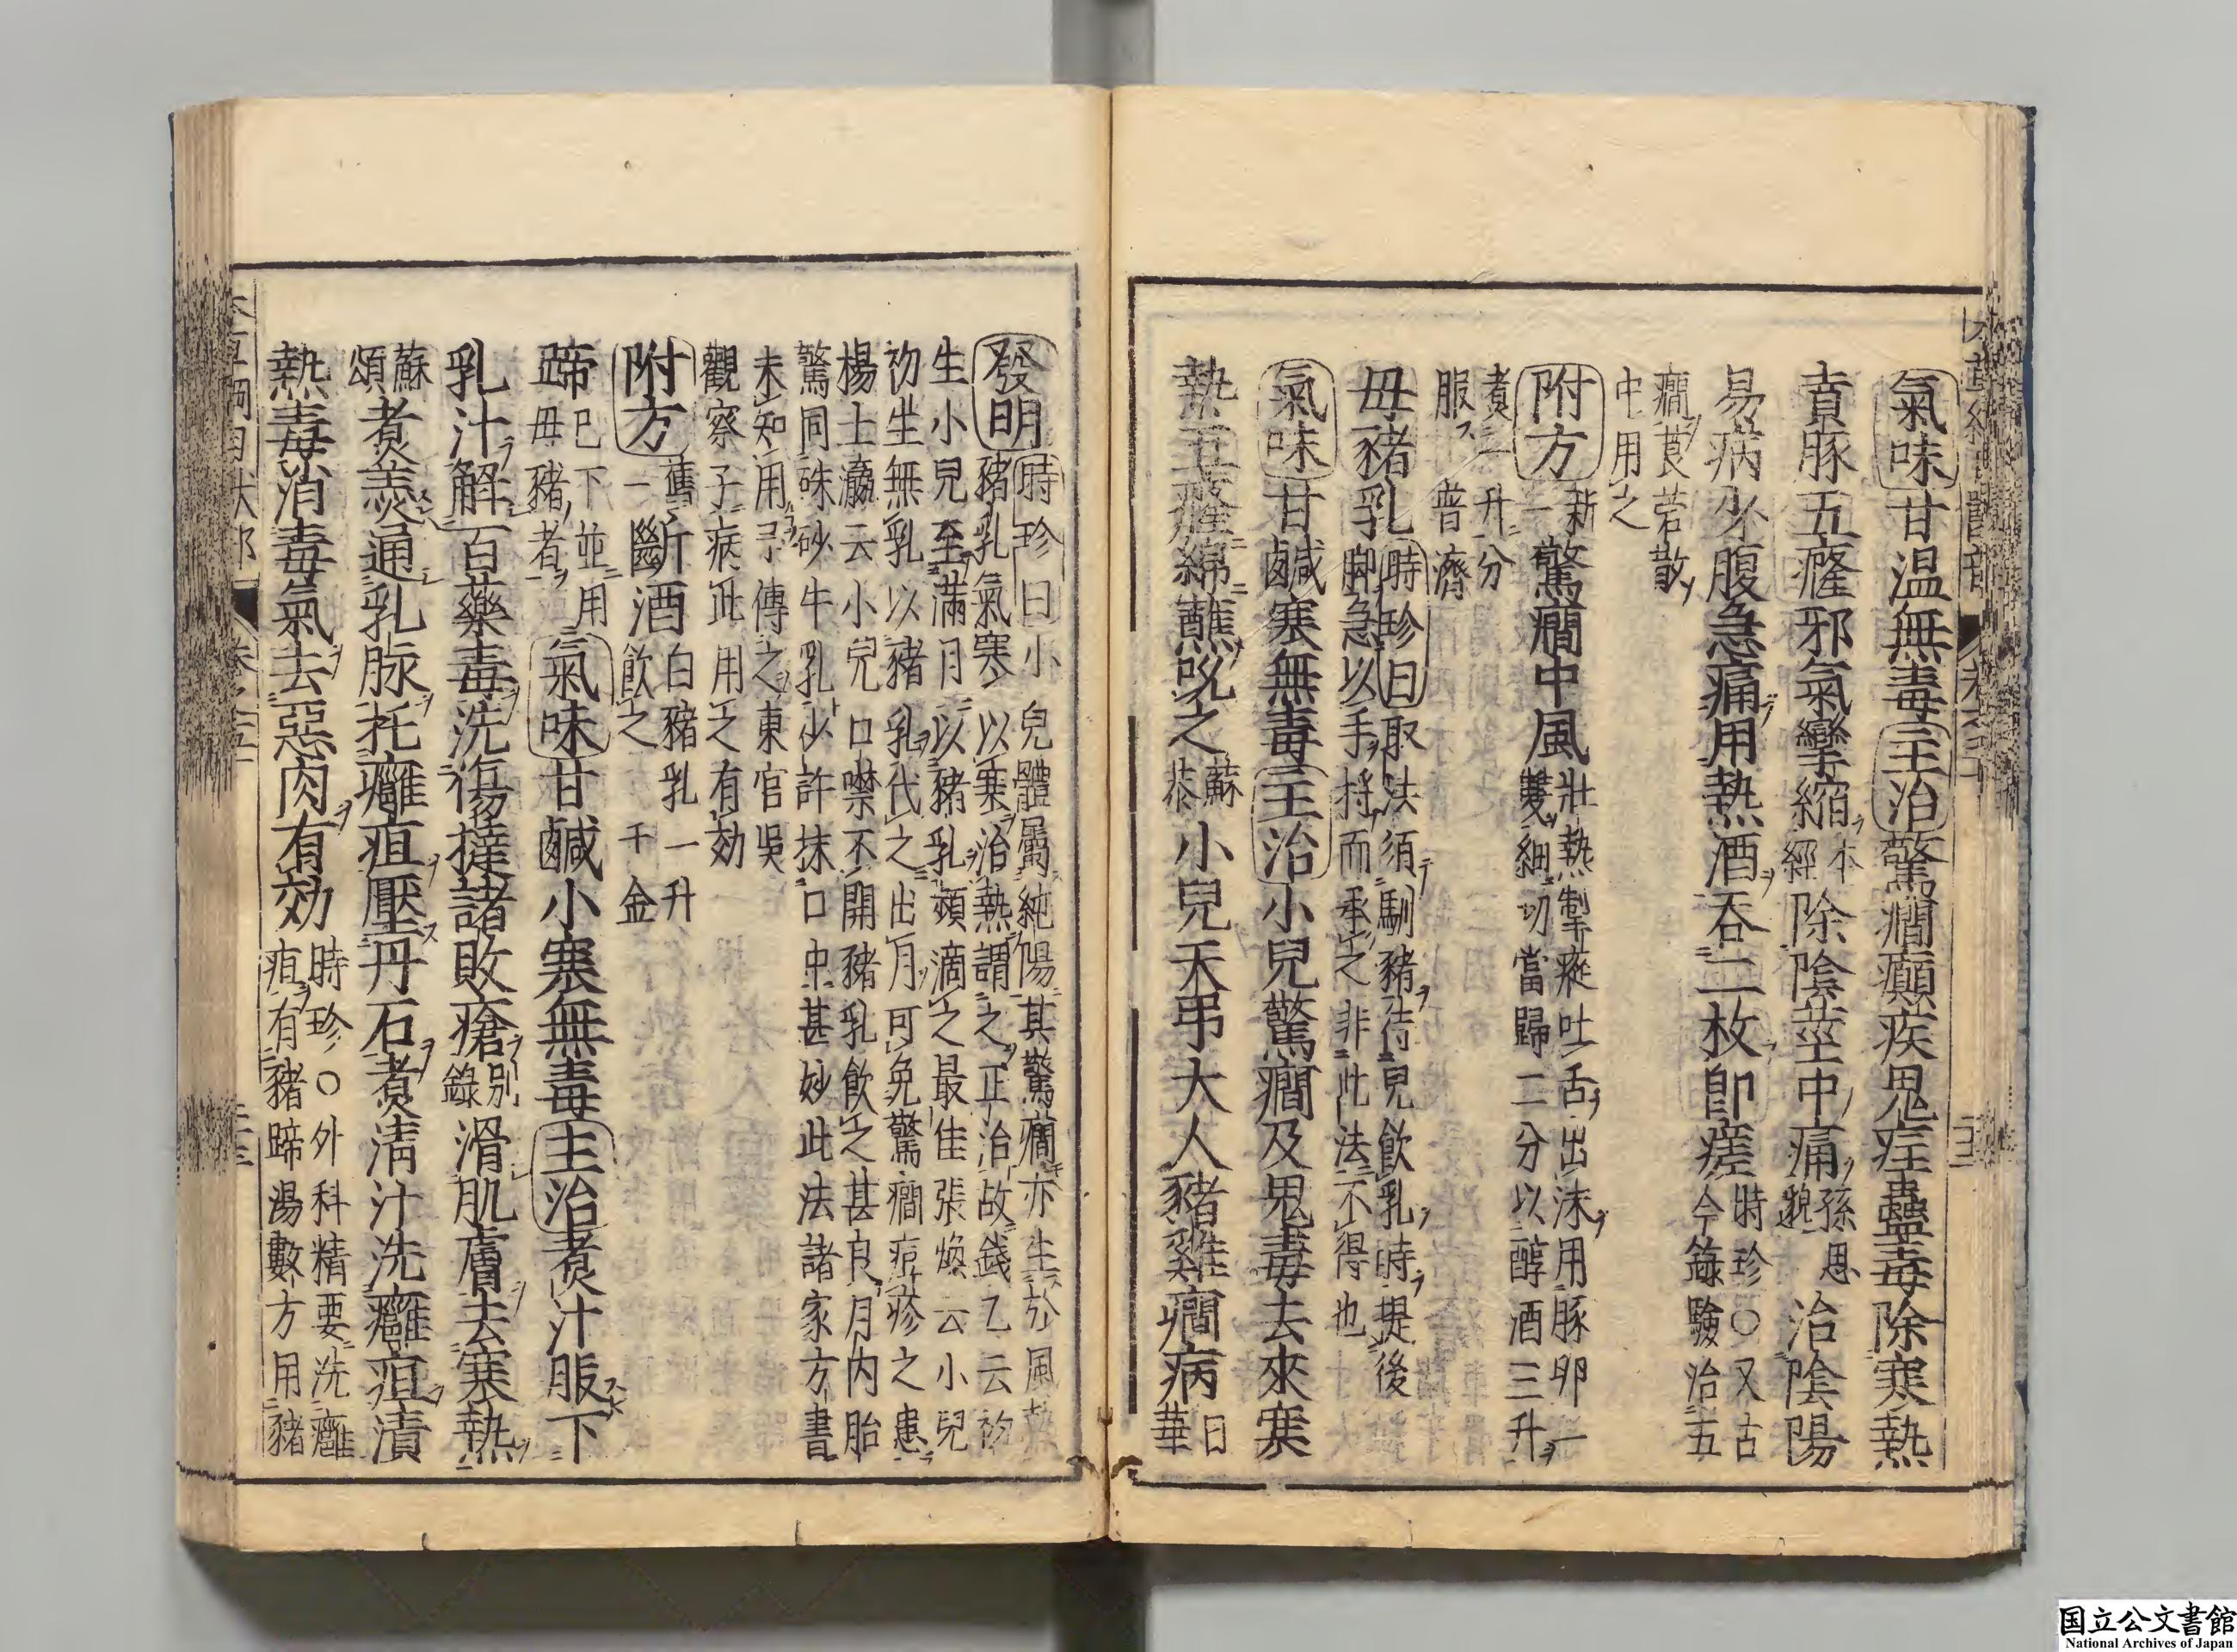 氣味甘温無毒主治驚癇癲疾鬼疰蠱毒除寒熱
賁豚五癃邪氣攣縮本經除陰莖中痛孫思邈治陰陽
易病少腹急痛用熱酒吞二枚卽瘥時珍○又古今錄驗治五
癇莨菪散
中用之
附方新一驚癇中風壯熱掣瘲吐舌出沫用豚卵一
雙細切當歸二分以醇酒三升
煮一升分
服普濟
母豬乳時珍曰取法須馴豬待兒飲乳時提後
脚急以手捋而承之非此法不得也
氣味甘鹹寒無毒主治小兒驚癇及鬼毒去來寒
熱五癃綿蘸吮之蘇恭小兒天弔大人豬雞癇病日華
發明時珍曰小兒體屬純陽其驚癇亦生於風熱
豬乳氣寒以寒治熱謂之正治故錢乙云初
生小兒至滿月以豬乳頻滴之最佳張煥云小兒
初生無乳以豬乳代之出月可免驚癇痘疹之患
楊士瀛云小兒口噤不開豬乳飲之甚良月內胎
驚同硃砂牛乳少許抹口中甚妙此法諸家方書
未知用予傳之東宮吳
觀察子病此用之有効
附方舊一斷酒白豬乳一升
飲之千金
蹄已下並用
母豬者氣味甘鹹小寒無毒主治煮汁服下
乳汁解百藥毒洗傷撻諸敗瘡別錄滑肌膚去寒熱
蘇頌煮羹通乳脉托癰疽壓丹石煮清汁洗癰疽漬
熱毒消毒氣去惡肉有効時珍○外科精要洗癰
疽有豬蹄湯數方用豬
国立公文書館
National Archives of Japan